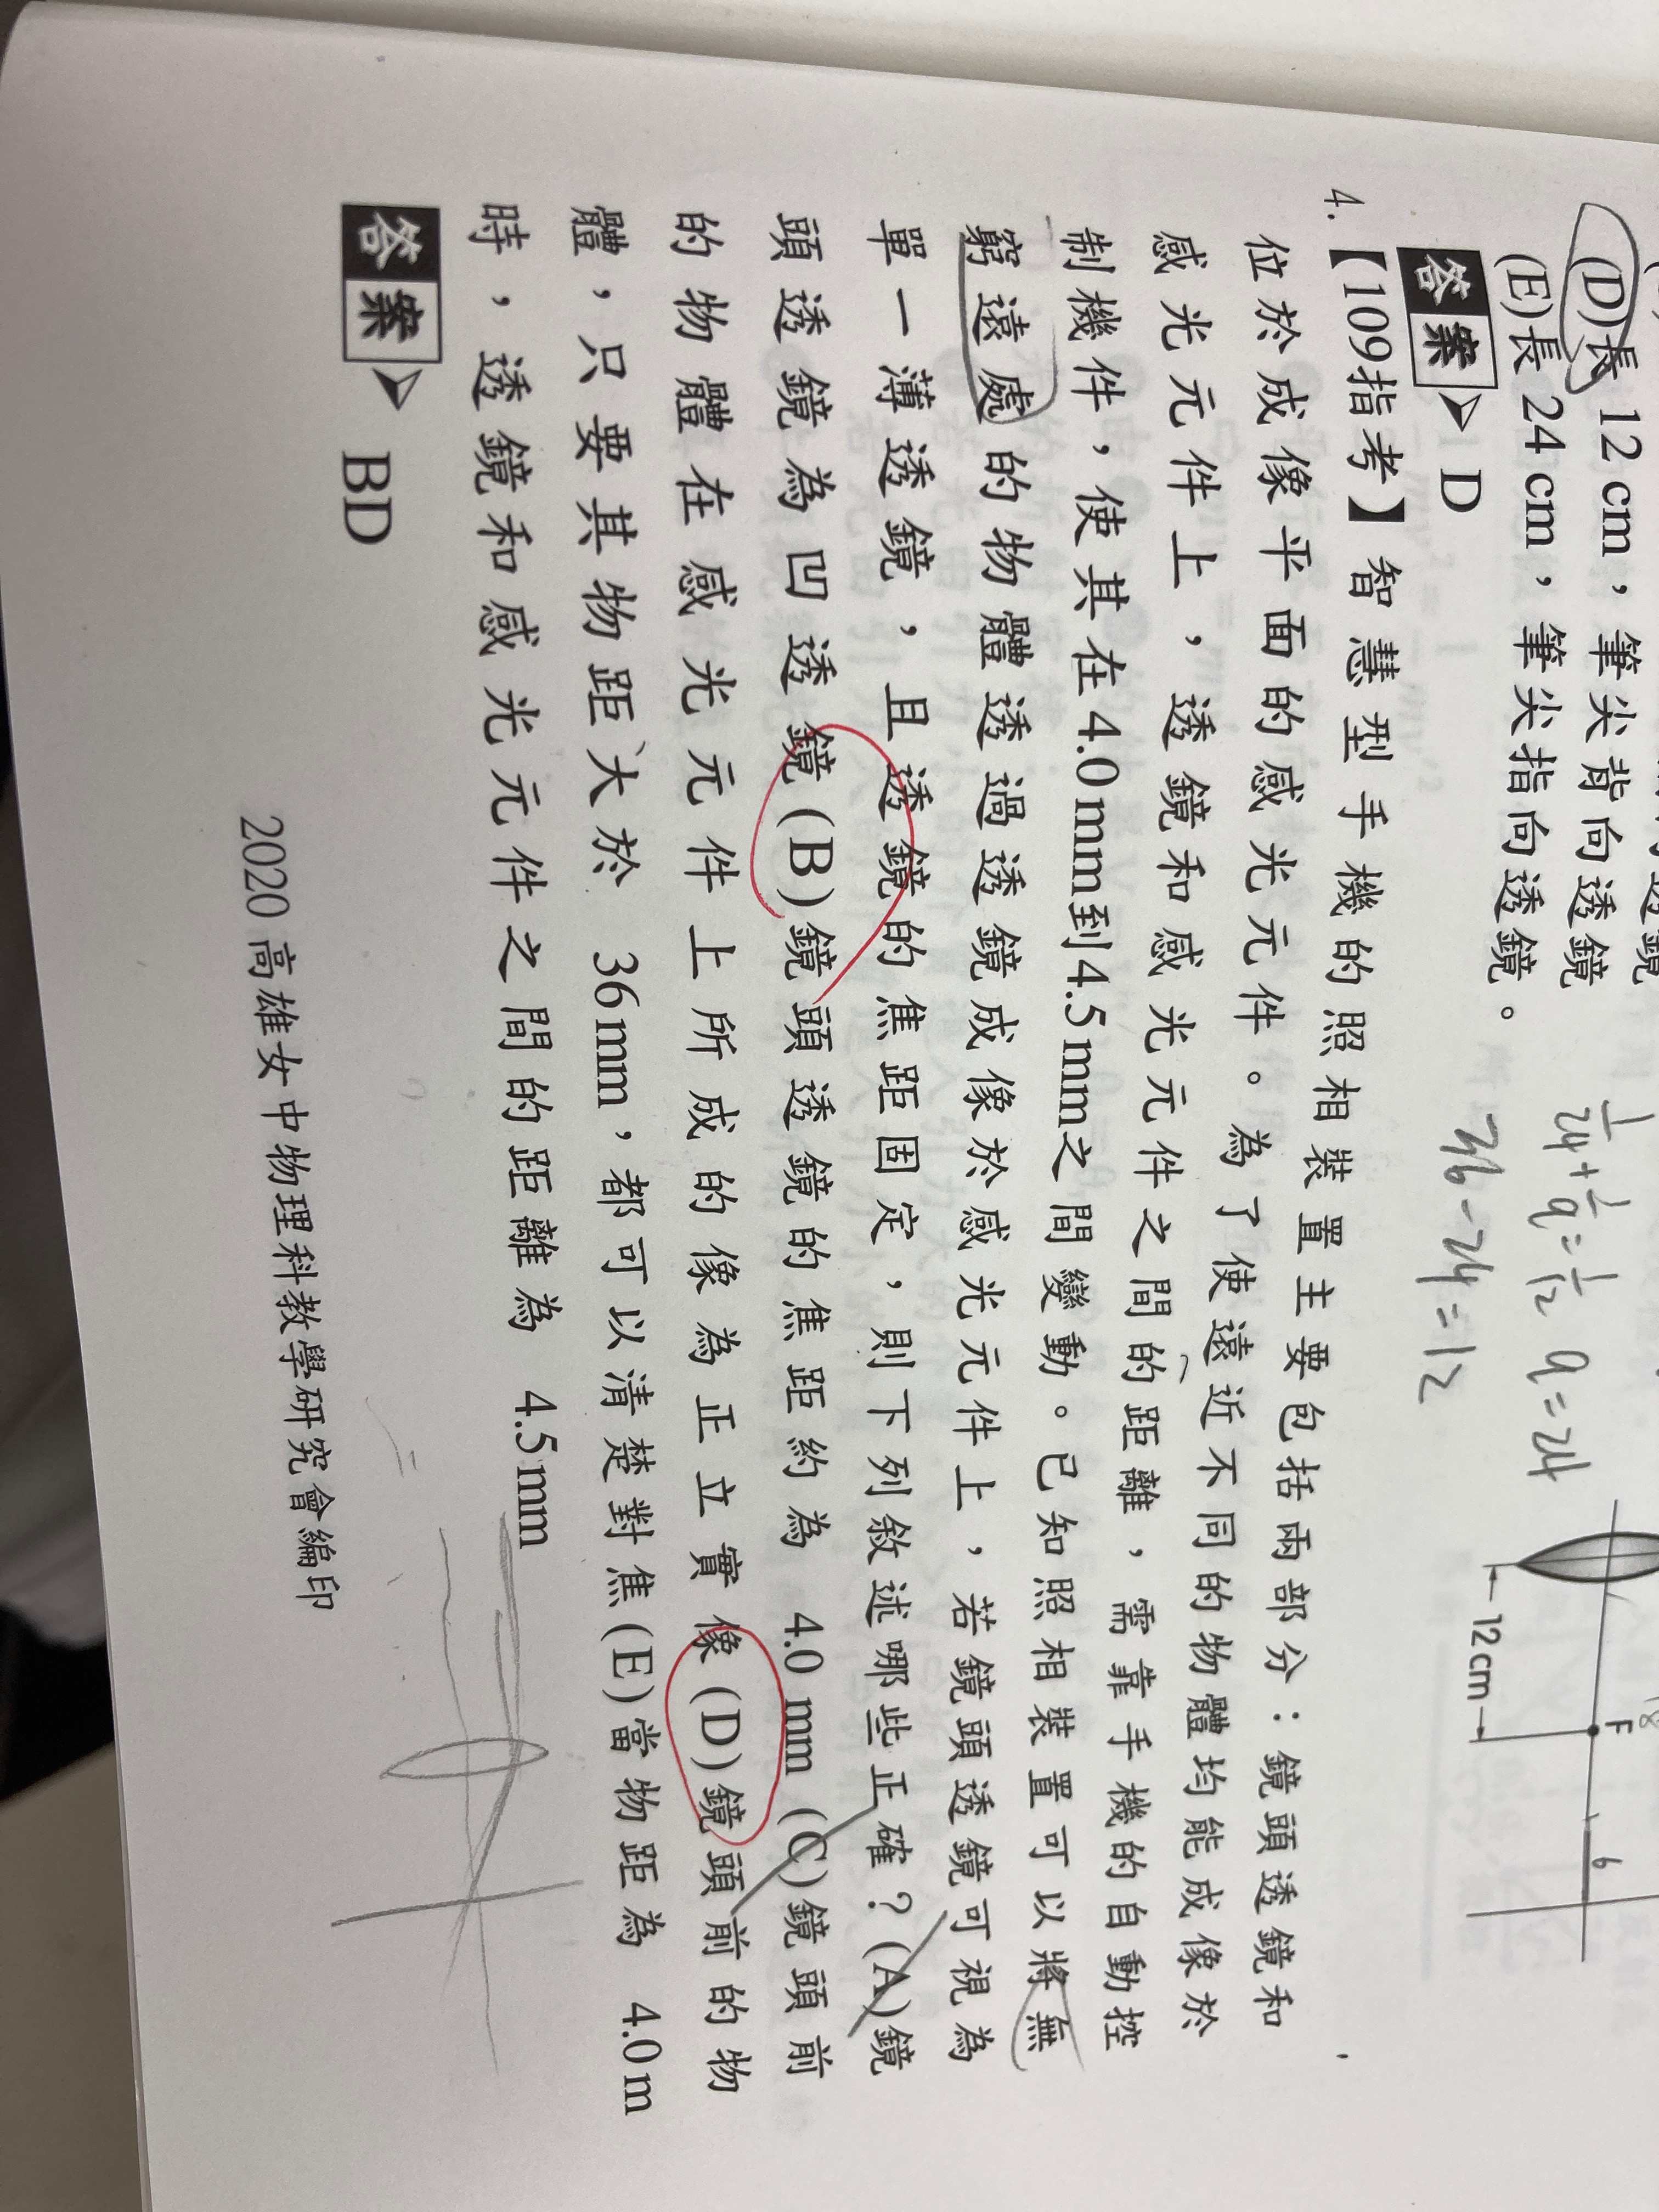 (D)長 12 cm，筆尖背向透鏡
(E)長 24 cm，筆尖指向透鏡。
答案 D
1/24 + 1/q = 1/12 q = 24
36 - 24 = 12
F
6
12 cm
4.【109指考】智慧型手機的照相裝置主要包括兩部分：鏡頭透鏡和
位於成像平面的感光元件。為了使遠近不同的物體均能成像於
感光元件上，透鏡和感光元件之間的距離，需靠手機的自動控
制機件，使其在4.0 mm到4.5 mm之間變動。已知照相裝置可以將無
窮遠處的物體透過透鏡成像於感光元件上，若鏡頭透鏡可視為
單一薄透鏡，且透鏡的焦距固定，則下列敘述哪些正確？(A)鏡
頭透鏡為凹透鏡(B)鏡頭透鏡的焦距約為 4.0 mm (C)鏡頭前
的物體在感光元件上所成的像為正立實像(D)鏡頭前的物
體，只要其物距大於 36 mm，都可以清楚對焦(E)當物距為 4.0 m
時，透鏡和感光元件之間的距離為 4.5 mm
答案 BD
2020 高雄女中物理科教學研究會編印